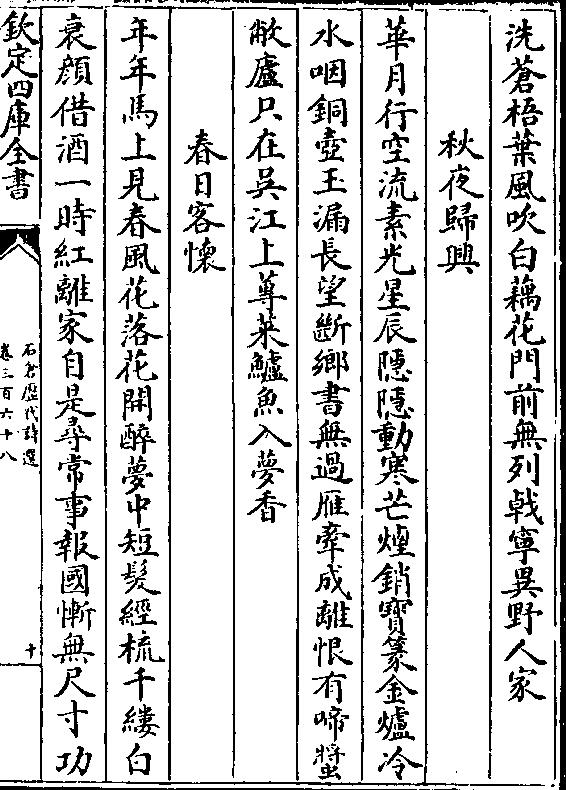 洗蒼梧葉風吹白藕花門前無列戟寧異野人家
秋夜歸興
華月行空流素光星辰隱隱動寒芒煙銷寶篆金爐冷
水咽銅壺玉漏長望斷鄉書無過雁牽成離恨有啼螿
敝廬只在吳江上蓴菜鱸魚入夢香
春日客懷
年年馬上見春風花落花開醉夢中短髮經梳千縷白
衰顔借酒一時紅離家自是尋常事報國慚無尺寸功
欽定四庫全書
石倉歷代詩選
卷三百六十八
十